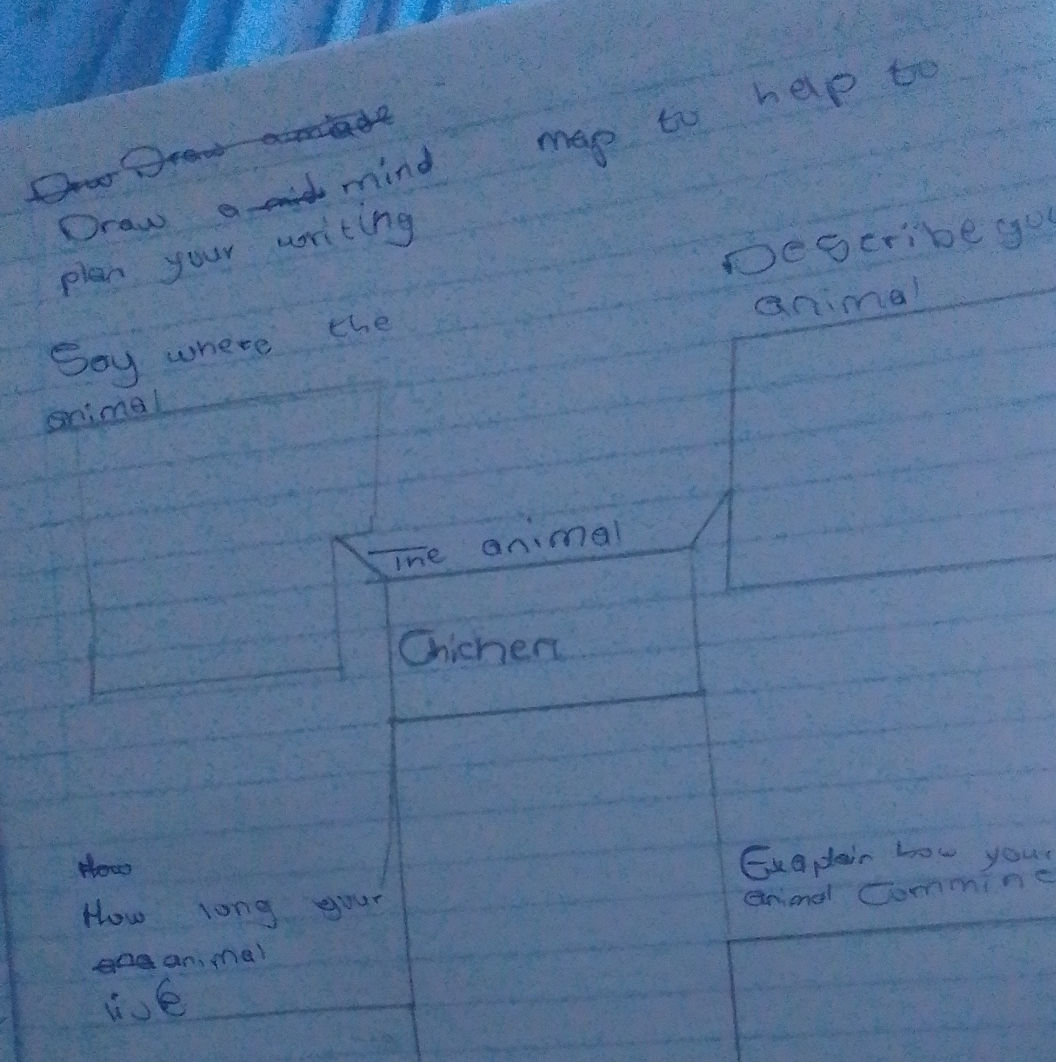 Draw a mind map to help to
plan your writing
Say where the
animal
Describe
animal
The animal
Chicken
How
How long your
animal
live
Explain how your
animal Commine